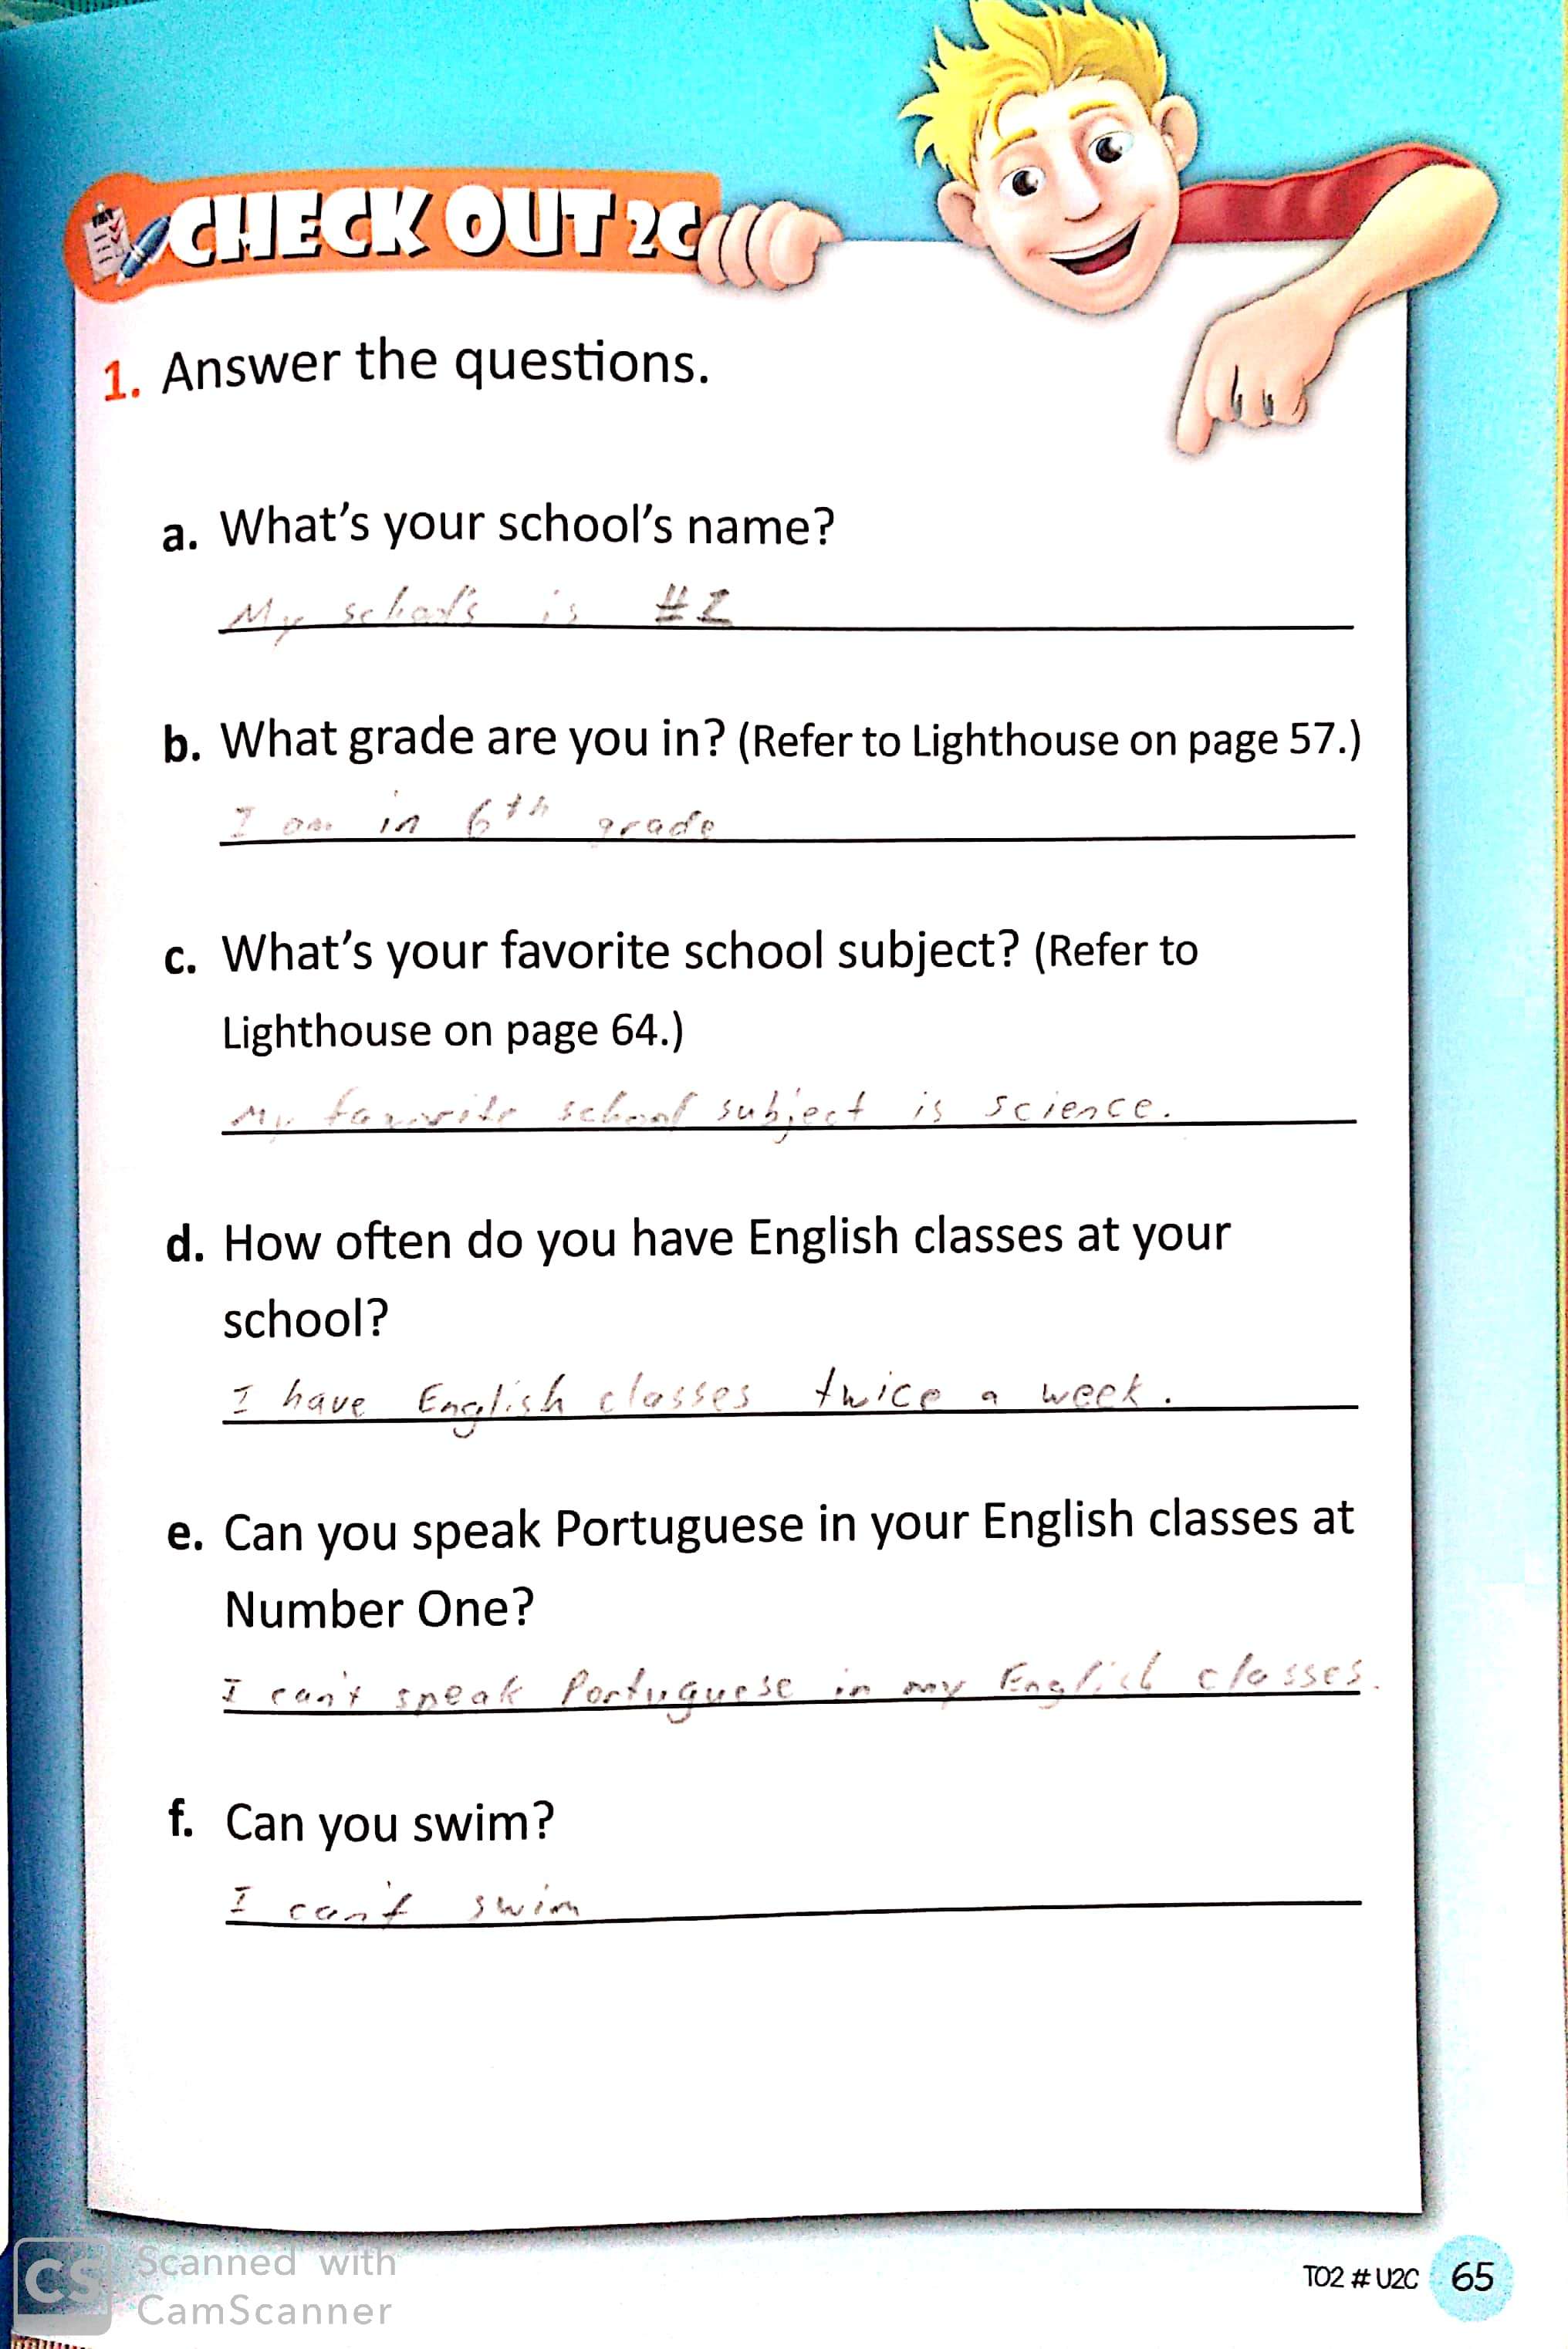 CHECK OUT 2C
1. Answer the questions.
a. What's your school's name?
My school's is #1
b. What grade are you in? (Refer to Lighthouse on page 57.)
I am in 6th grade
c. What's your favorite school subject? (Refer to
Lighthouse on page 64.)
My favorite school subject is science.
d. How often do you have English classes at your
school?
I have English classes twice a week.
e. Can you speak Portuguese in your English classes at
Number One?
I can't speak Portuguese in my English classes.
f. Can you swim?
I can't swim
CS Scanned with
CamScanner
TO2 # U2C 65